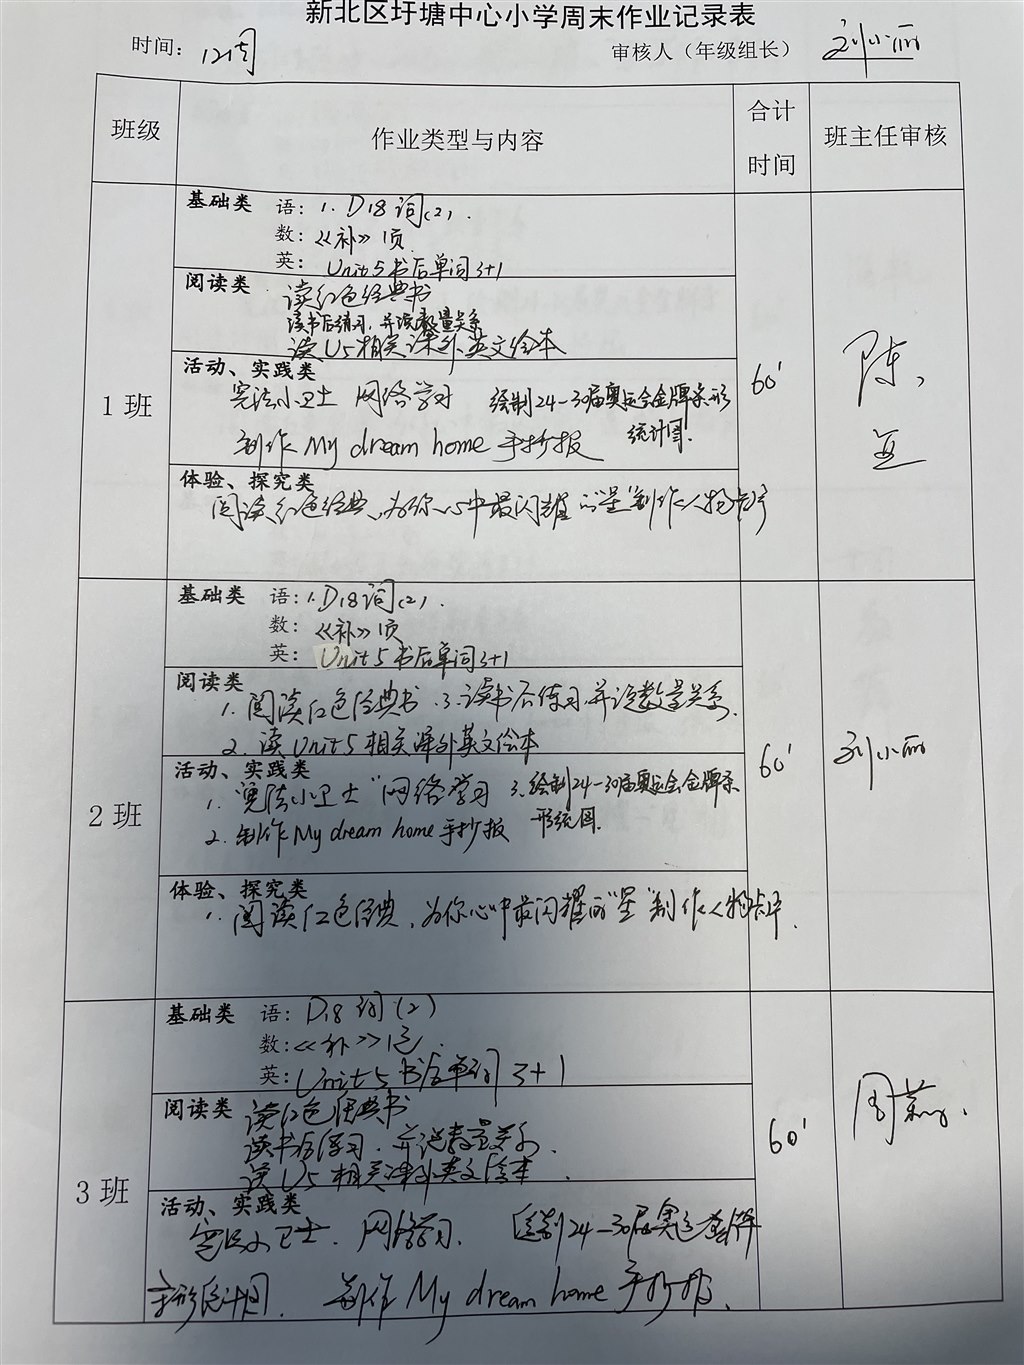 新北区圩塘中心小学周末作业记录表
时间：12周 审核人（年级组长） 刘小丽
班级 作业类型与内容 合计时间 班主任审核
1班
基础类 语：1. D18词(2).
数：《补》1页
英：Unit5书后单词3+1
阅读类 读红色经典书
读书后练习，并说数量关系
读U5相关课外英文绘本
活动、实践类
宪法小卫士 网络学习 绘制24-30届奥运会金牌条形
统计图.
制作My dream home手抄报
体验、探究类
阅读红色经典，为你心中最闪耀的"星"制作人物卡片
60'
陈
2班
基础类 语：1. D18词(2).
数：《补》1页
英：Unit5书后单词3+1
阅读类
1. 阅读红色经典书 3. 读书后练习并说数量关系.
2. 读Unit5相关课外英文绘本
活动、实践类
1. "宪法小卫士"网络学习 3. 绘制24-30届奥运会金牌条
形统图.
2. 制作My dream home手抄报
体验、探究类
1. 阅读红色经典，为你心中最闪耀的"星"制作人物卡片.
60'
刘小丽
3班
基础类 语：D18词(2)
数：《补》1页.
英：Unit5书后单词3+1
阅读类 读红色经典书
读书后练习，并说数量关系.
读U5相关课外英文绘本.
活动、实践类
宪法小卫士. 网络学习. 绘制24-30届奥运金牌
条形统计图. 制作My dream home手抄报.
60'
周